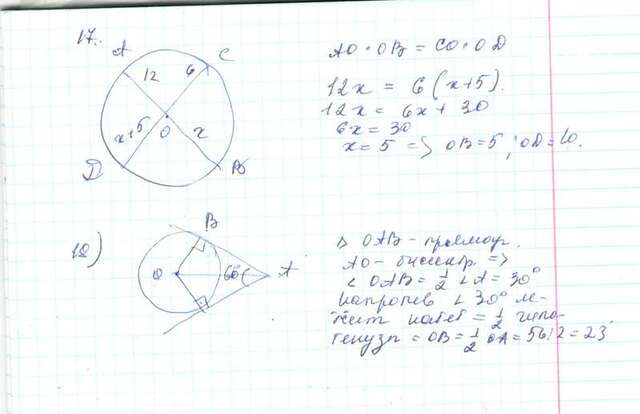 17.
A
C
12
6
x+5
O
x
D
B
AO · OB = CO · OD
12x = 6(x+5).
12x = 6x + 30
6x = 30
x = 5 => OB=5; OD=10.
18)
B
O
60°
A
△ OAB - прямоуг.
AO - биссектр =>
∠ OAB = 1/2 ∠A = 30°
напротив ∠ 30° ле-
жит катет = 1/2 гипо-
тенузы = OB = 1/2 OA = 56:2 = 23